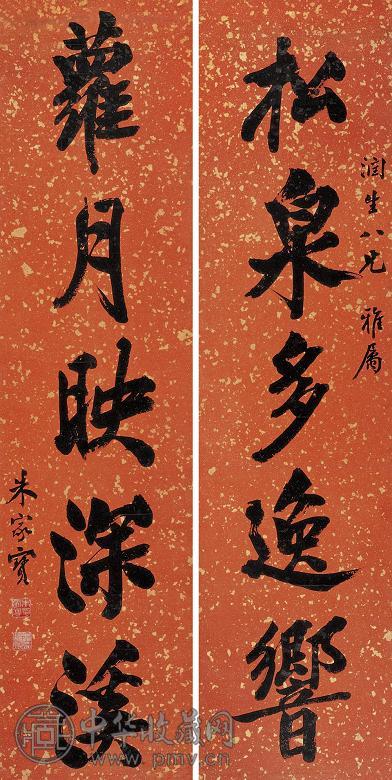 松泉多逸響
潤生八兄 雅屬
蘿月映深溪
朱家寶
中华收藏网
www.pmv.cn